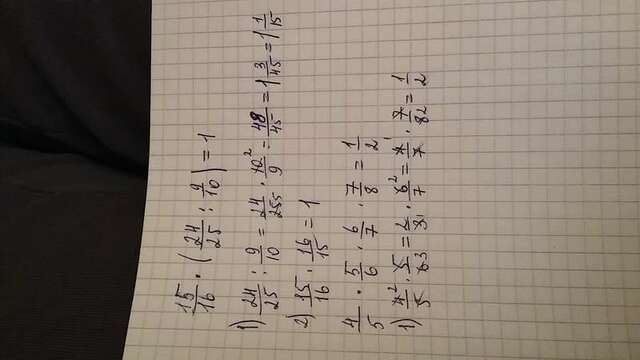 15/16 · (24/25 : 9/10) = 1
1) 24/25 : 9/10 = 24/25 5 · 10 2/9 = 48/45 = 1 3/45 = 1 1/15
2) 15/16 · 16/15 = 1
4/5 · 5/6 · 6/7 · 7/8 = 1/2
1) 4 2/5 · 5/6 3 = 2/3 1 · 6 2/7 = 4 1/7 · 7/8 2 = 1/2